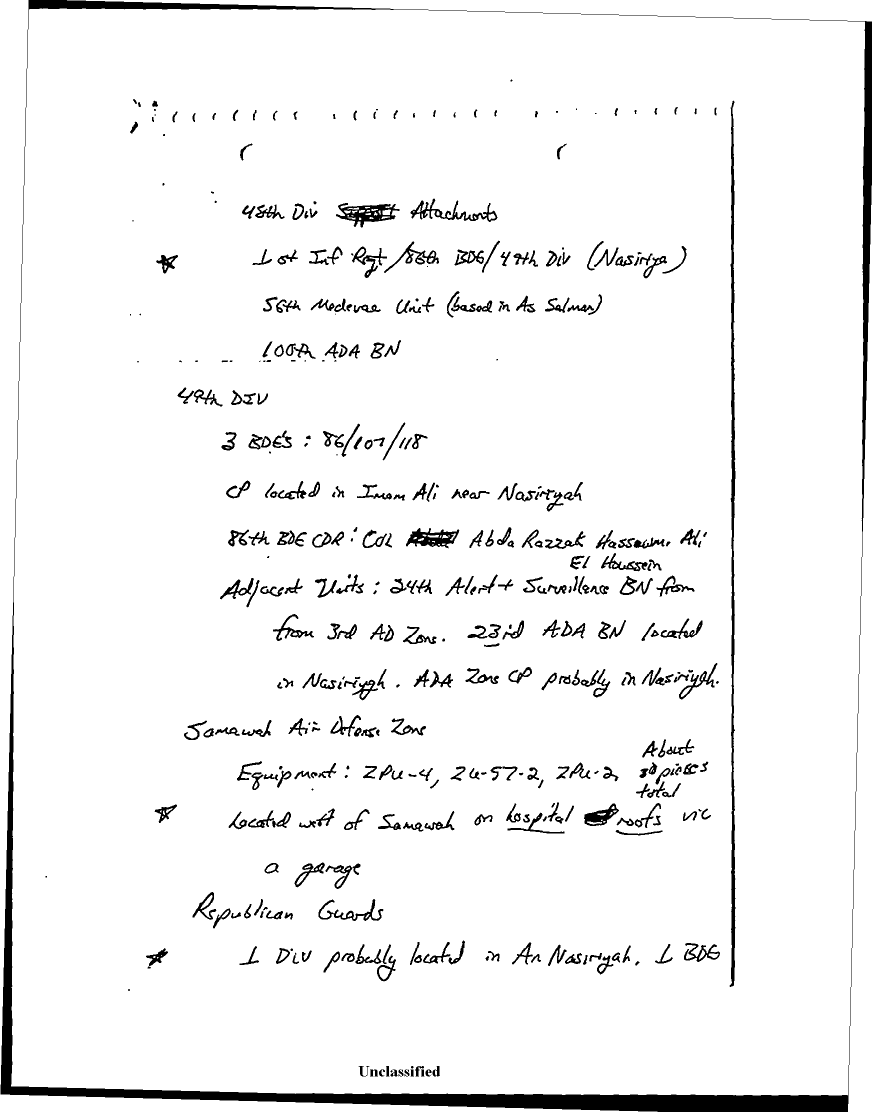 48th Div Support Attachments
1 of Inf Regt/86th BDE/49th Div (Nasiriya)
56th Medevac Unit (based in As Salman)
100th ADA BN
49th DIV
3 BDE's : 86/107/118
CP located in Imam Ali near Nasiriyah
86th BDE CDR : COL Abda Razzak Ali
El Houssein
Adjacent Units : 24th Alert + Surveillance BN from
from 3rd AD Zone. 23rd ADA BN located
in Nasiriygh. ADA Zone CP probably in Nasiriyah.
Samawah Air Defense Zone
Equipment : ZPU-4, ZU-57-2, ZPU-2,
About
30 pieces
total
Located west of Samawah on hospital roofs vic
a garage
Republican Guards
1 Div probably located in An Nasiriyah. 1 BDE
Unclassified